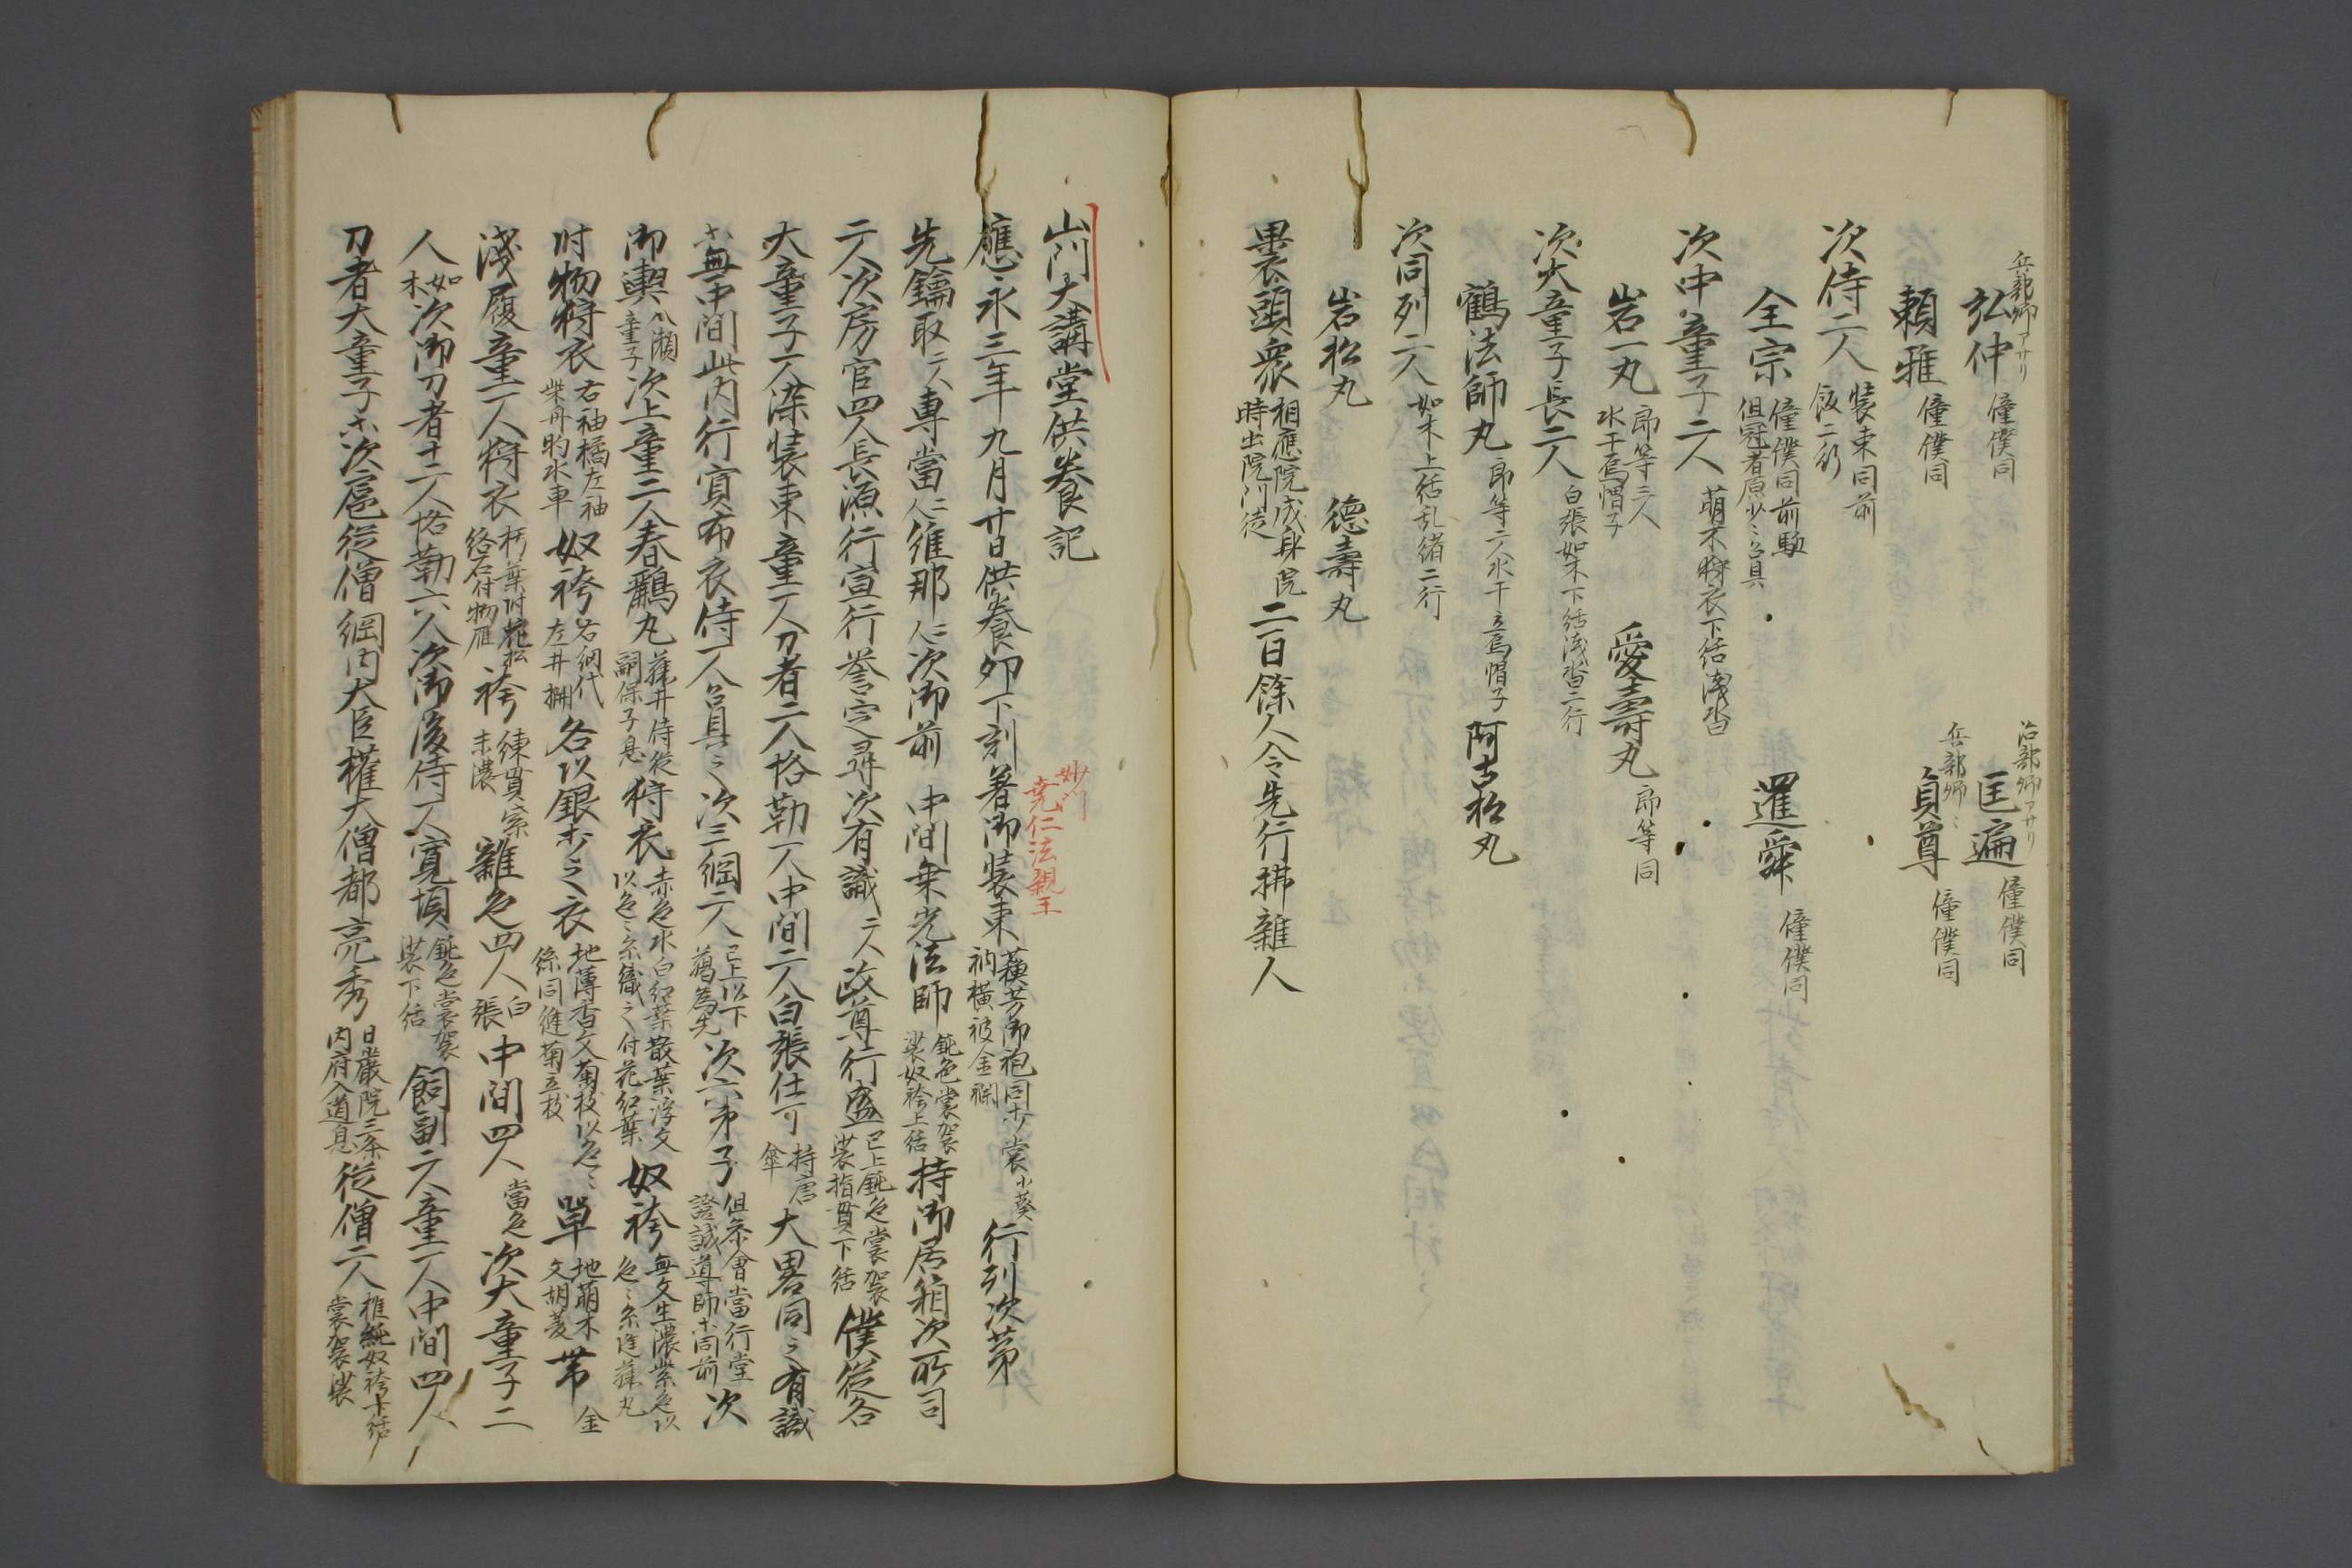 兵部卿アサリ
弘仲 僮僕同
治部卿アサリ
匡遍 僮僕同
頼雅 僮僕同
兵部卿〻
貞尊 僮僕同
次侍二人 装束同前
全宗 僮僕同前駈
但冠者原少々召具
暹舜 僮僕同
次中童子二人 萌木狩衣下括浅沓
岩一丸 郎等三人
水干烏帽子
愛壽丸 郎等同
次大童子長二人 白張如木下括浅沓二行
鶴法師丸 郎等二人水干立烏帽子
阿古松丸
次同列二人 如木上括乱緒二行
岩松丸 徳壽丸
裹頭衆 相應院成身院
時出院門徒
二百餘人令先行拂雜人
山門大講堂供養記
妙〻
堯仁法親王
應永三年九月廿日供養卯下刻著御装束 蘓芳御袍同御裳小葵
衲横被金襴
行列次第
先鑰取二人專當二人維那二人次御前 中間乗光法師 鈍色裳袈
裟奴袴上括
持御居箱次所司
二人次房官四人長源行宣行誉定尋次有識二人政尊行盛 已上鈍色裳袈
裟指貫下括
僕従各
大童子一人染装束童一人刀者二人恪勤一人中間二人白張仕丁 持唐
傘
大畧同之有識
等無中間此内行實布衣侍一人召具之次三綱二人 已上以下
﨟為先
次六弟子 但条會當行堂
證誠導師等同前
次
御輿 八瀬
童子
次上童二人春鸝丸 藤井侍従
嗣保子息
狩衣 赤色水白紅葉散葉浮文
以色々糸織之付花紅葉
奴袴 無文生濃紫色以
色々糸進藤丸
付物狩衣 右袖橘左袖
柴舟的水車
奴袴 右網代
左井柵
各以銀打之衣 地薄香文菊枝以色々
絲同縫菊立枝
單 地萌木
文胡菱
帯 金
浅履童一人狩衣 朽葉付花松
絡石付物雁
袴 練貫宗
末濃
雜色四人 白
張
中間四人 當色
次大童子二
人 如
木
次御刀者十二人恪勤六人次御後侍一人寛順 鈍色裳袈
裟下括
飼副二人童一人中間四人
刀者大童子等次扈従僧綱内大臣權大僧都亮秀 日嚴院三条
内府入道息
従僧二人 椎鈍奴袴下括
裳袈裟